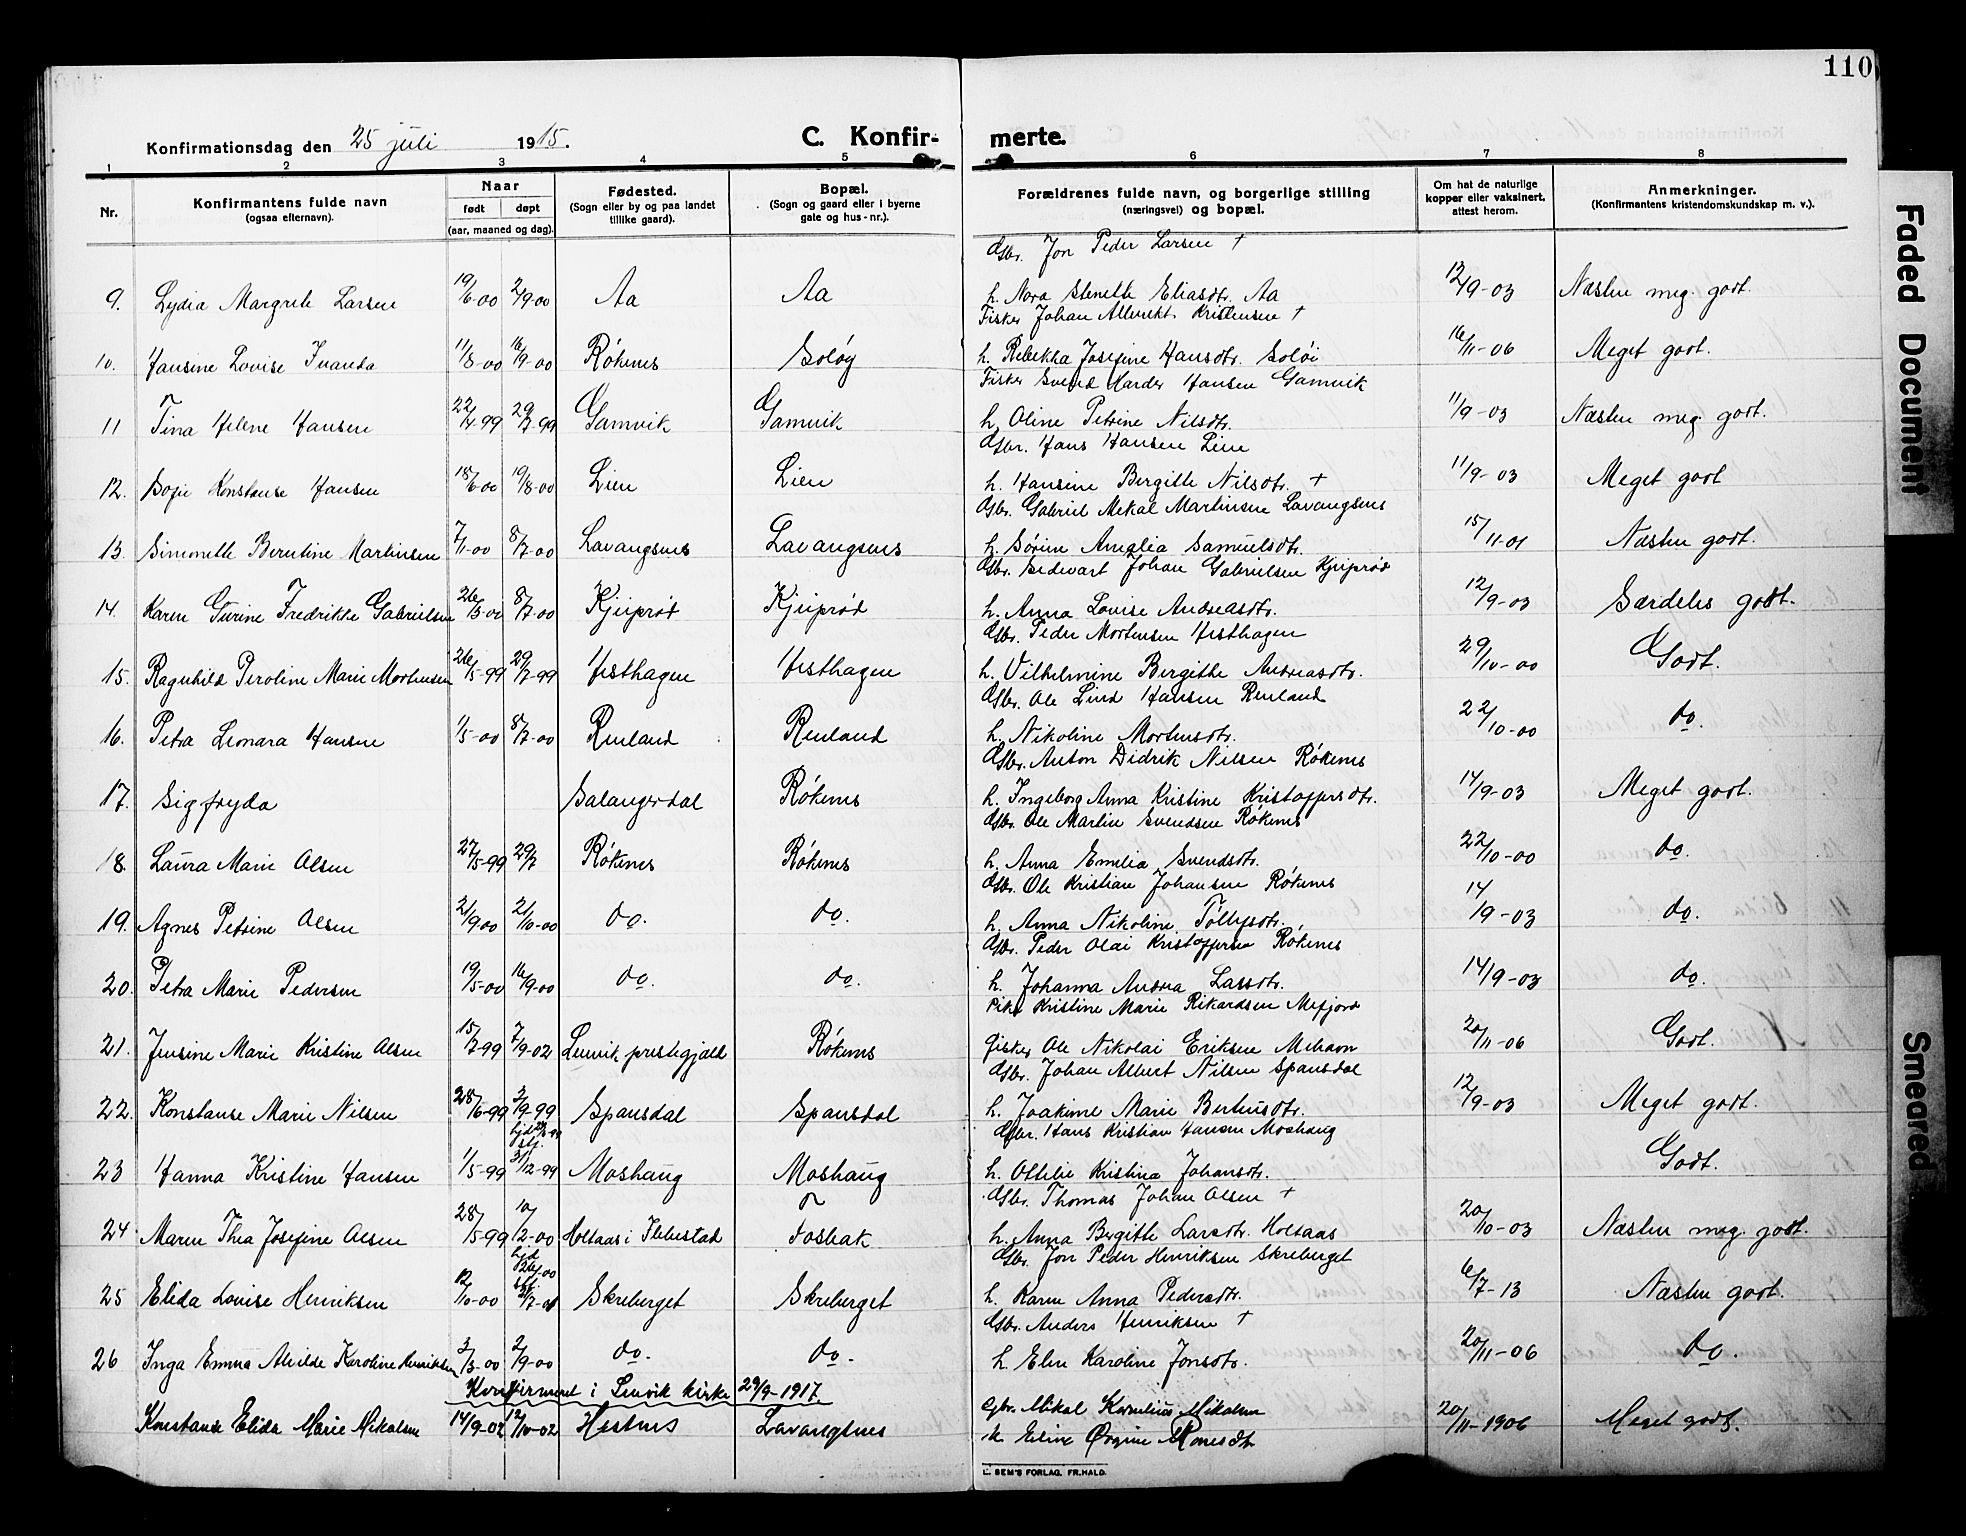 110
Konfirmationsdag den 25 juli 1915.
C. Konfirmerte.
1 2 3 4 5 6 7 8
Nr.
Konfirmantens fulde navn
(ogsaa efternavn).
Naar
født døpt
(aar, maaned og dag).
Fødested.
(Sogn eller by og paa landet
tillike gaard).
Bopæl.
(Sogn og gaard eller i byerne
gate og hus-nr.).
Forældrenes fulde navn, og borgerlige stilling
(næringsvei) og bopæl.
Om hat de naturlige
kopper eller vaksinert,
attest herom.
Anmerkninger.
(Konfirmantens kristendomskundskap m. v.).
Gbr. Jon Peder Larsen †
9. Lydia Margrete Larsen 19/6-00 2/9-00 Aa Aa h. Nora Stenette Eliasdtr. Aa 12/9-03 Næsten meg. godt.
Fisker Johan Albrekt Kristensen †
10. Hansine Lovise Juanda 11/8-00 16/9-00 Røkenes Soløy h. Rebekka Josefine Hansdtr. Soløi 16/11-06 Meget godt.
Fisker Svend Harder Hansen Gamvik
11 Tina Helene Hansen 22/4-99 29/7-99 Gamvik Gamvik h. Oline Petrine Nilsdtr. 11/9-03 Næsten meg. godt.
Gbr. Hans Hansen Lien
12. Sofie Konstanse Hansen 18/6-00 19/8-00 Lien Lien h. Hansine Bergitte Nilsdtr. † 11/9-03 Meget godt
Gbr. Gabriel Mekal Martinsen Lavangsnes
13. Simonette Berntine Martinsen 7/1-00 8/7-00 Lavangsnes Lavangsnes h. Sørine Amalia Samuelsdtr. 15/11-01 Næsten godt.
Gbr. Sedevart Johan Gabrielsen Kjeiprød
14. Karen Gurine Fredrikke Gabrielsen 26/3-00 8/7-00 Kjeiprød Kjeiprød h. Anna Lovise Andreasdtr. 12/9-03 Særdeles godt.
Gbr. Peder Mortensen Hesthagen
15. Ragnhild Peroline Marie Mortensen 26/5-99 29/7-99 Hesthagen Hesthagen h. Vilhelmine Bergithe Andreasdtr. 29/10-00 Godt.
Gbr. Ole Lind Hansen Renland
16. Petra Leonara Hansen 1/5-00 8/7-00 Renland Renland h. Nikoline Mortensdtr. 22/10-00 do.
Gbr. Anton Didrik Nilsen Røkenes
17. Sigfryda Salangsdal Røkenes h. Ingeborg Anna Kristine Kristoffersdtr. 14/9-03 Meget godt.
Gbr. Ole Martin Svendsen Røkenes
18. Laura Marie Olsen 27/5-99 29/7 Røkenes Røkenes h. Anna Emelia Svendsdtr. 22/10-00 do.
Gbr. Ole Kristian Johansen Røkenes
19. Agnes Petrine Olsen 2/9-00 21/10-00 do. do. h. Anna Nikoline Tollefsdtr. 14/9-03 do.
Gbr. Peder Olai Kristoffersen Røkenes
20. Petra Marie Pedersen 19/5-00 16/9-00 do. do. h. Johanna Andrea Lassdtr. 14/9-03 do.
Pike Kristine Marie Rikardsen Mefjord
21. Jensine Marie Kristine Olsen 15/7-99 7/9-02 Lenvik prestegjæld Røkenes Fisker Ole Nikolai Eriksen Mehavn 20/11-06 Godt.
Gbr. Johan Albert Nilsen Spansdal
22. Konstanse Marie Nilsen 28/6-99 3/9-99 Spansdal Spansdal h. Joakime Marie Berteusdtr. 12/9-03 Meget godt.
Gbr. Hans Kristian Hansen Moshaug
23 Hanna Kristine Hansen 1/5-99 31/12-99 Moshaug Moshaug h. Ottelie Kristina Johansdtr. Godt.
Gbr. Thomas Johan Olsen †
24 Maren Thea Josefine Olsen 28/5-99 10/2-00 Holtaas i Ibbestad Fosbak h. Anna Bergitte Larsdtr. Holtaas 20/10-03 Næsten meg. godt.
Gbr. Jon Peder Henriksen Skreberget
25 Elida Lovise Henriksen 12/10-00 Skreberget Skreberget h. Karen Anna Pedersdtr. 6/7-13 Næsten godt.
Gbr. Anders Henriksen †
26 Inga Emma Alvilde Karoline Henriksen 3/3-00 2/9-00 do. do. h. Elen Karoline Jonsdtr. 20/11-06 do.
Konfirmeret i Lenvik kirke 29/9-1917.
Gbr. Mikal Kornelius Mikalsen
Konstanse Elida Marie Mikalsen 14/9-02 12/10-02 Hestnes Lavangsnes h. Eline Ørgine Monesdtr 20/11-1906 Meget godt.
L. SEM'S FORLAG. FR.HALD.
Faded Document
Smeared